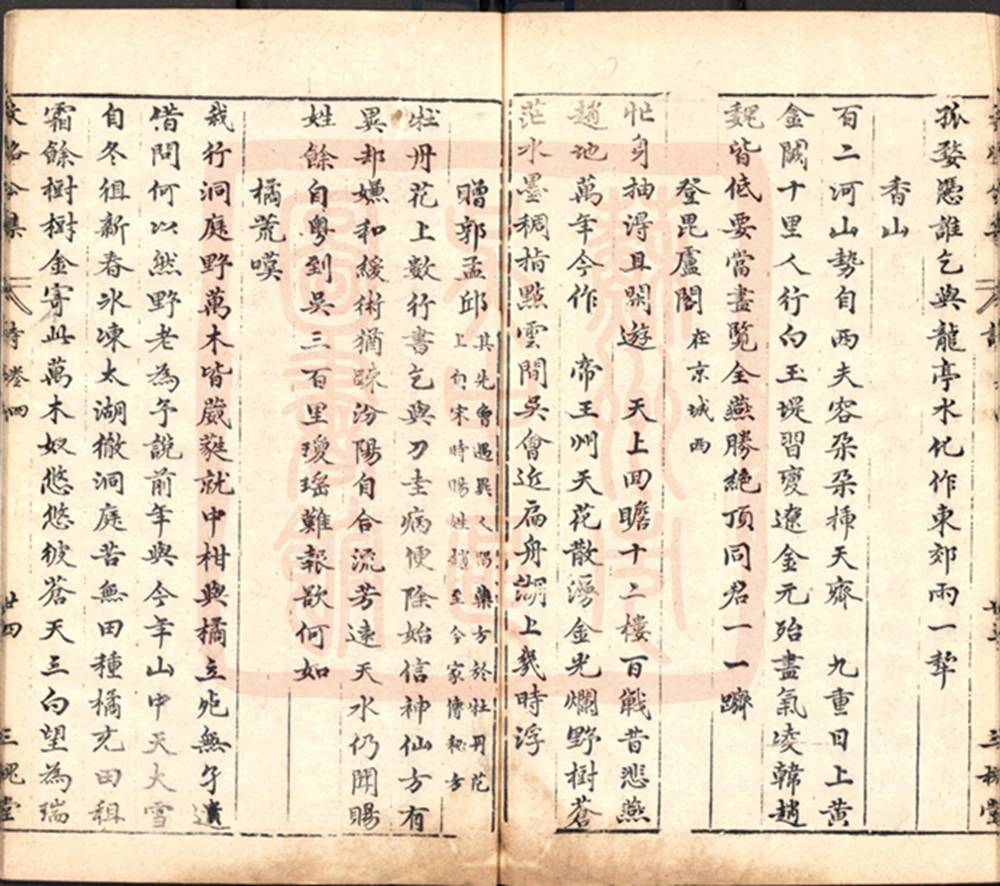 孤婺憑誰乞與龍亭水化作東郊雨一犂
香山
百二河山勢自西夫容朵朵揷天齊 九重日上黄
金闕十里人行白玉堤習變遼金元殆盡氣凌韓趙
魏皆低要當盡覽全燕勝絕頂同君一一躋
登毘盧閣 在京城西
忙身抽得且閑遊 天上回瞻十二樓百戰昔悲燕
趙地萬年今作 帝王州天花散漫金光爛野樹蒼
茫水墨稠指點雲間吳會近扁舟湖上幾時浮
贈郭孟邱 其先會遇異人 藥方於牡丹花
上向宋時賜姓趙至今家傳秘方
牡丹花上數行書乞與刀圭病便除始信神仙方有
異却嫌和緩術猶疎汾陽自合流芳遠天水仍聞賜
姓餘自粤到吳三百里瓊瑤難報欲何如
橘荒嘆
我行洞庭野萬木皆葳蕤就中柑與橘立死無孑遺
借問何以然野老為予說前年與今年山中天大雪
自冬徂新春氷凍太湖徹洞庭苦無田種橘充田租
霜餘樹樹金寄此萬木奴悠悠彼蒼天三白望為瑞
文恪公集 詩 卷四 廿四 三槐堂